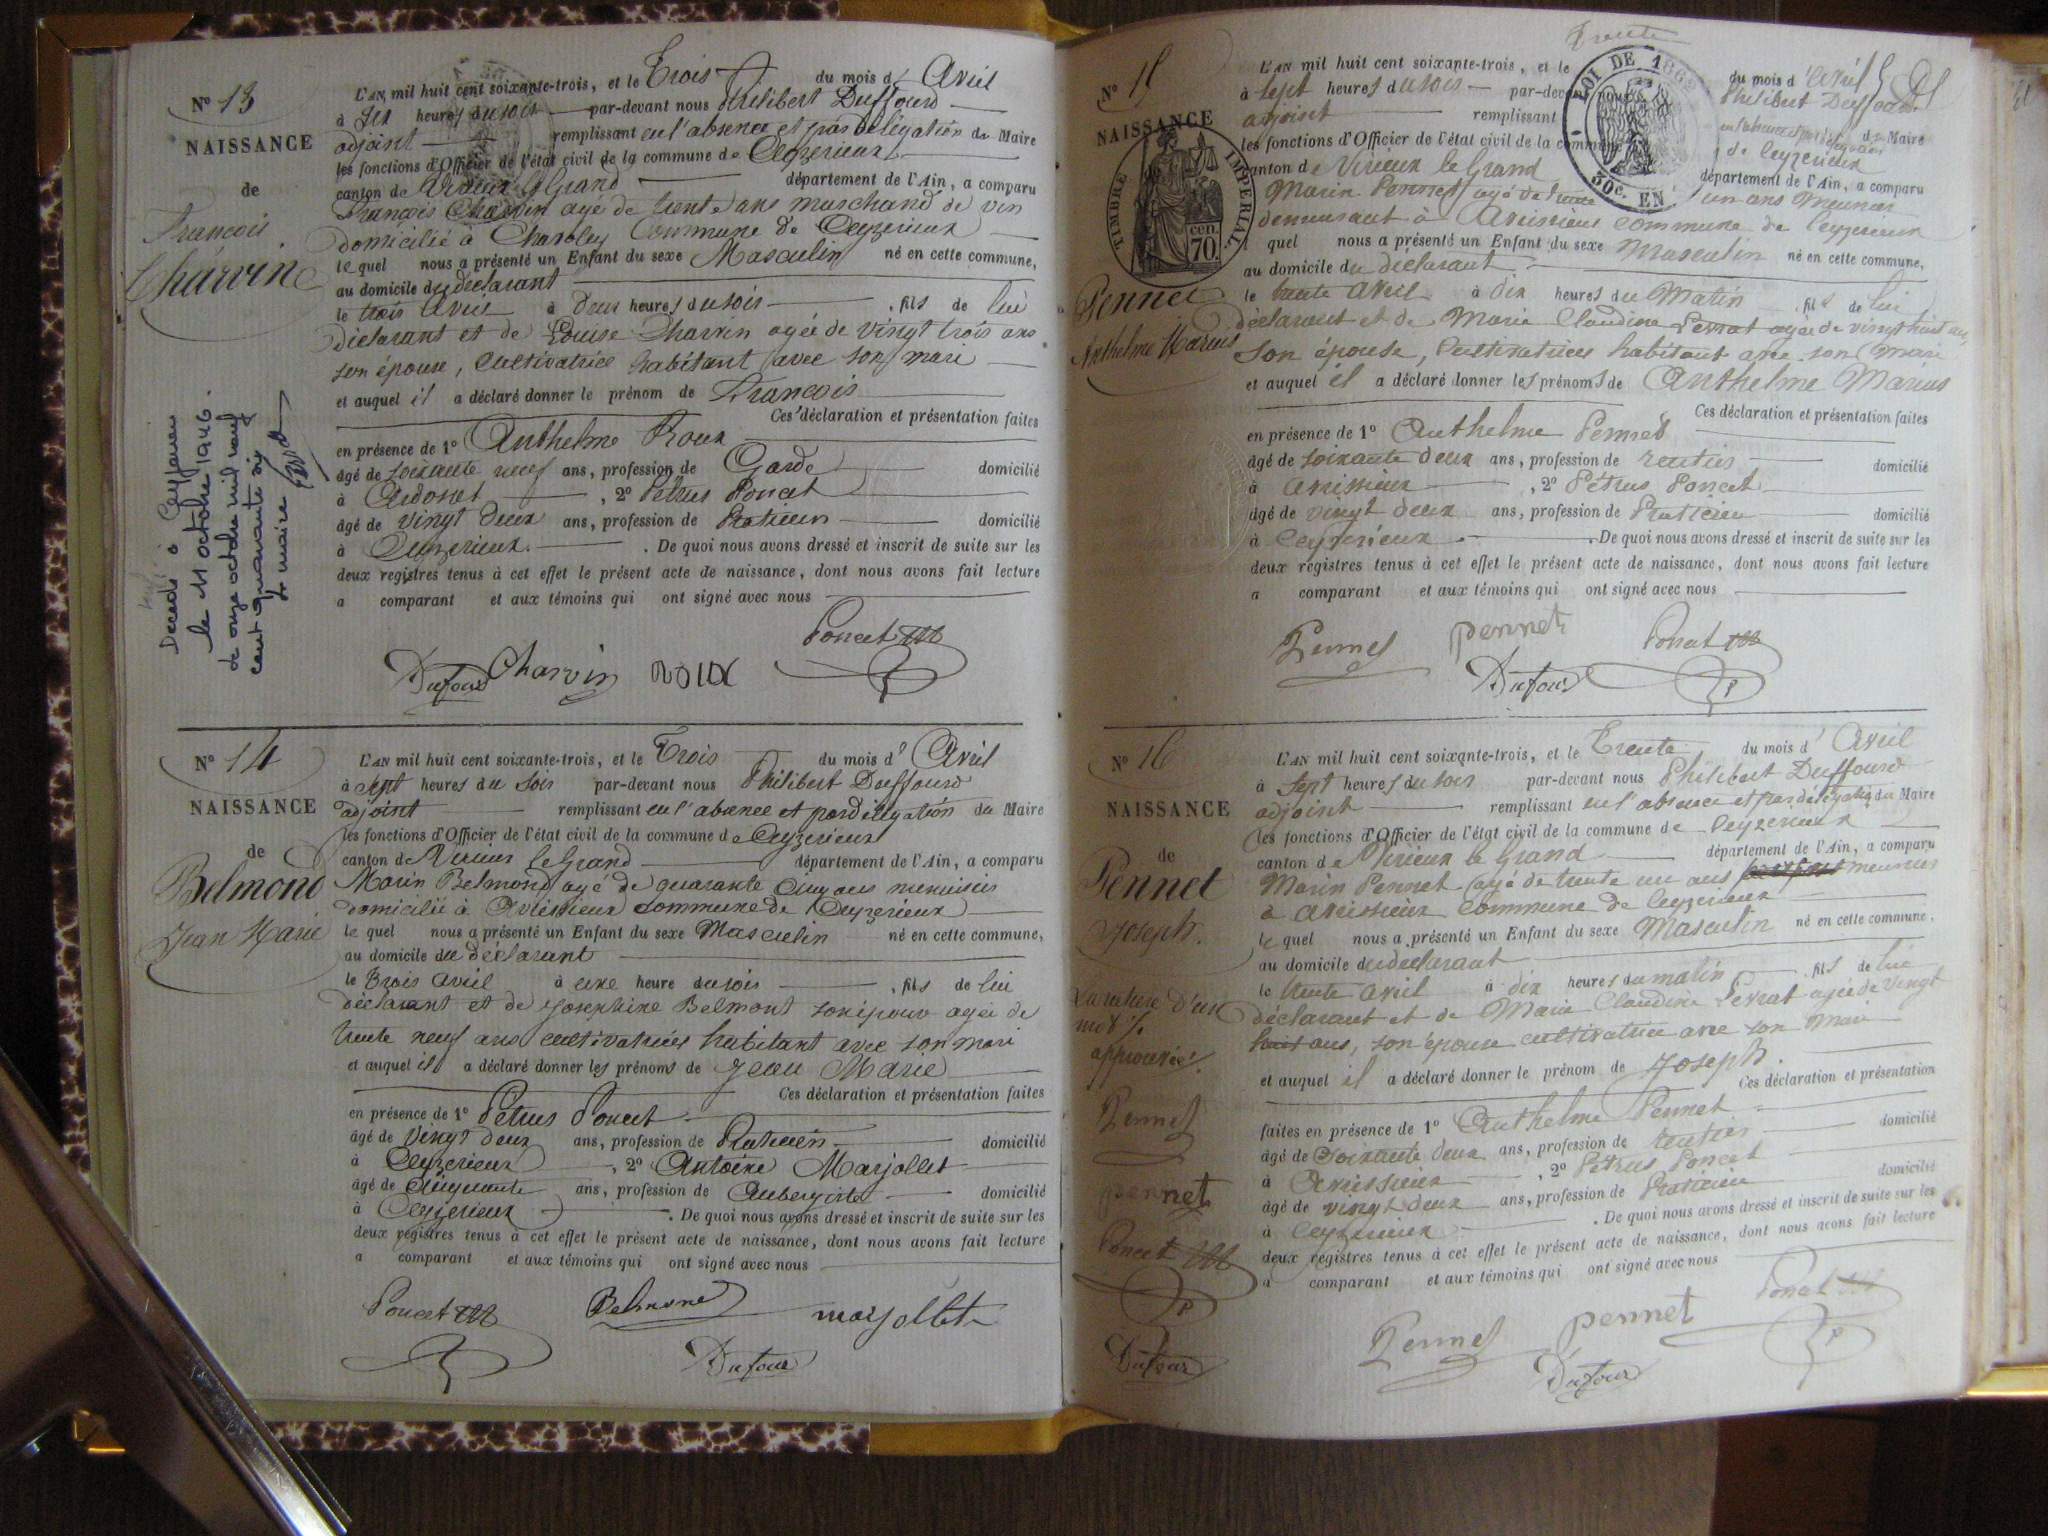 N° 13
NAISSANCE
de
François
Charvin
L'AN mil huit cent soixante-trois, et le Trois du mois d' Avril
à six heures du soir par-devant nous Philibert Duffourd
adjoint remplissant en l'absence et par délégation du Maire
les fonctions d'Officier de l'état civil de la commune de Ceyzerieux
canton de Virieux le Grand département de l'Ain, a comparu
François Charvin agé de trente ans marchand de vin
domicilié à Chavoley Commune de Ceyzerieux
le quel nous a présenté un Enfant du sexe Masculin né en cette commune,
au domicile du déclarant
le trois Avril à deux heures du soir , fils de lui
déclarant et de Louise Charvin agée de vingt trois ans
son épouse, Cultivatrice habitant avec son mari
et auquel il a déclaré donner le prénom de François
Ces déclaration et présentation faites
en présence de 1° Anthelme Roux
âgé de soixante neuf ans, profession de Garde domicilié
à , 2° Pétrus Poncet
âgé de vingt deux ans, profession de Praticien domicilié
à Ceyzerieux . De quoi nous avons dressé et inscrit de suite sur les
deux registres tenus à cet effet le présent acte de naissance, dont nous avons fait lecture
a comparant et aux témoins qui ont signé avec nous
Poncet
Dufour Charvin roux
Décédé à
le 11 octobre 1946.
le onze octobre mil neuf
cent quarante six
Le maire
N° 14
NAISSANCE
de
Belmond
Jean Marie
L'AN mil huit cent soixante-trois, et le Trois du mois d' Avril
à sept heures du soir par-devant nous Philibert Duffourd
adjoint remplissant en l'absence et par délégation du Maire
les fonctions d'Officier de l'état civil de la commune de Ceyzerieux
canton de Virieux le Grand département de l'Ain, a comparu
Marin Belmond agé de quarante cinq ans menuisier
domicilié à Avissieux commune de Ceyzerieux
le quel nous a présenté un Enfant du sexe Masculin né en cette commune,
au domicile du déclarant
le Trois Avril à une heure du soir , fils de lui
déclarant et de Josephine Belmont son épouse agée de
trente neuf ans cultivatrice habitant avec son mari
et auquel il a déclaré donner les prénoms de Jean Marie
Ces déclaration et présentation faites
en présence de 1° Pétrus Poncet
âgé de vingt deux ans, profession de Praticien domicilié
à Ceyzerieux , 2° Antoine Marjollet
âgé de cinquante ans, profession de Aubergiste domicilié
à Ceyzerieux . De quoi nous avons dressé et inscrit de suite sur les
deux registres tenus à cet effet le présent acte de naissance, dont nous avons fait lecture
a comparant et aux témoins qui ont signé avec nous
Poncet Belmond marjollet
Dufour
Trente
N° 15
NAISSANCE
TIMBRE IMPERIAL
70 cen.
LOI DE 1862
30c. EN
Pennet
Anthelme Marius
L'AN mil huit cent soixante-trois, et le du mois d' Avril
à sept heures du soir par-devant nous Philibert Duffourd
adjoint remplissant en l'absence et par délégation du Maire
les fonctions d'Officier de l'état civil de la commune de Ceyzerieux
canton de Virieux le Grand département de l'Ain, a comparu
Marin Pennet agé de trente un ans meunier
demeurant à Avissieux commune de Ceyzerieux
quel nous a présenté un Enfant du sexe Masculin né en cette commune,
au domicile du déclarant
le trente avril à dix heures du Matin , fils de lui
déclarant et de Marie Claudine Perrat agée de vingt huit ans
son épouse, Cultivatrice habitant avec son mari
et auquel il a déclaré donner les prénoms de Anthelme Marius
Ces déclaration et présentation faites
en présence de 1° Anthelme Pennet
âgé de soixante deux ans, profession de rentier domicilié
à Avissieux , 2° Pétrus Poncet
âgé de vingt deux ans, profession de Praticien domicilié
à Ceyzerieux . De quoi nous avons dressé et inscrit de suite sur les
deux registres tenus à cet effet le présent acte de naissance, dont nous avons fait lecture
a comparant et aux témoins qui ont signé avec nous
Pennet pennet Poncet
Dufour
N° 16
NAISSANCE
de
Pennet
Joseph.
La rature d'un
mot
approuvée.
Pennet
pennet
Poncet
Dufour
L'AN mil huit cent soixante-trois, et le Trente du mois d' Avril
à sept heures du soir par-devant nous Philibert Duffourd
adjoint remplissant en l'absence et par délégation du Maire
les fonctions d'Officier de l'état civil de la commune de Ceyzerieux
canton de Virieux le Grand département de l'Ain, a comparu
Marin Pennet agé de trente un ans meunier
à Avissieux commune de Ceyzerieux
le quel nous a présenté un Enfant du sexe Masculin né en cette commune,
au domicile du déclarant
le trente avril à dix heures du matin , fils de lui
déclarant et de Marie Claudine Perrat agée de vingt
huit ans, son épouse cultivatrice avec son mari
et auquel il a déclaré donner le prénom de Joseph.
Ces déclaration et présentation
faites en présence de 1° Anthelme Pennet
âgé de soixante deux ans, profession de rentier domicilié
à Avissieux , 2° Pétrus Poncet
âgé de vingt deux ans, profession de Praticien domicilié
à Ceyzerieux . De quoi nous avons dressé et inscrit de suite sur les
deux registres tenus à cet effet le présent acte de naissance, dont nous avons fait lecture
a comparant et aux témoins qui ont signé avec nous
Pennet pennet Poncet
Dufour